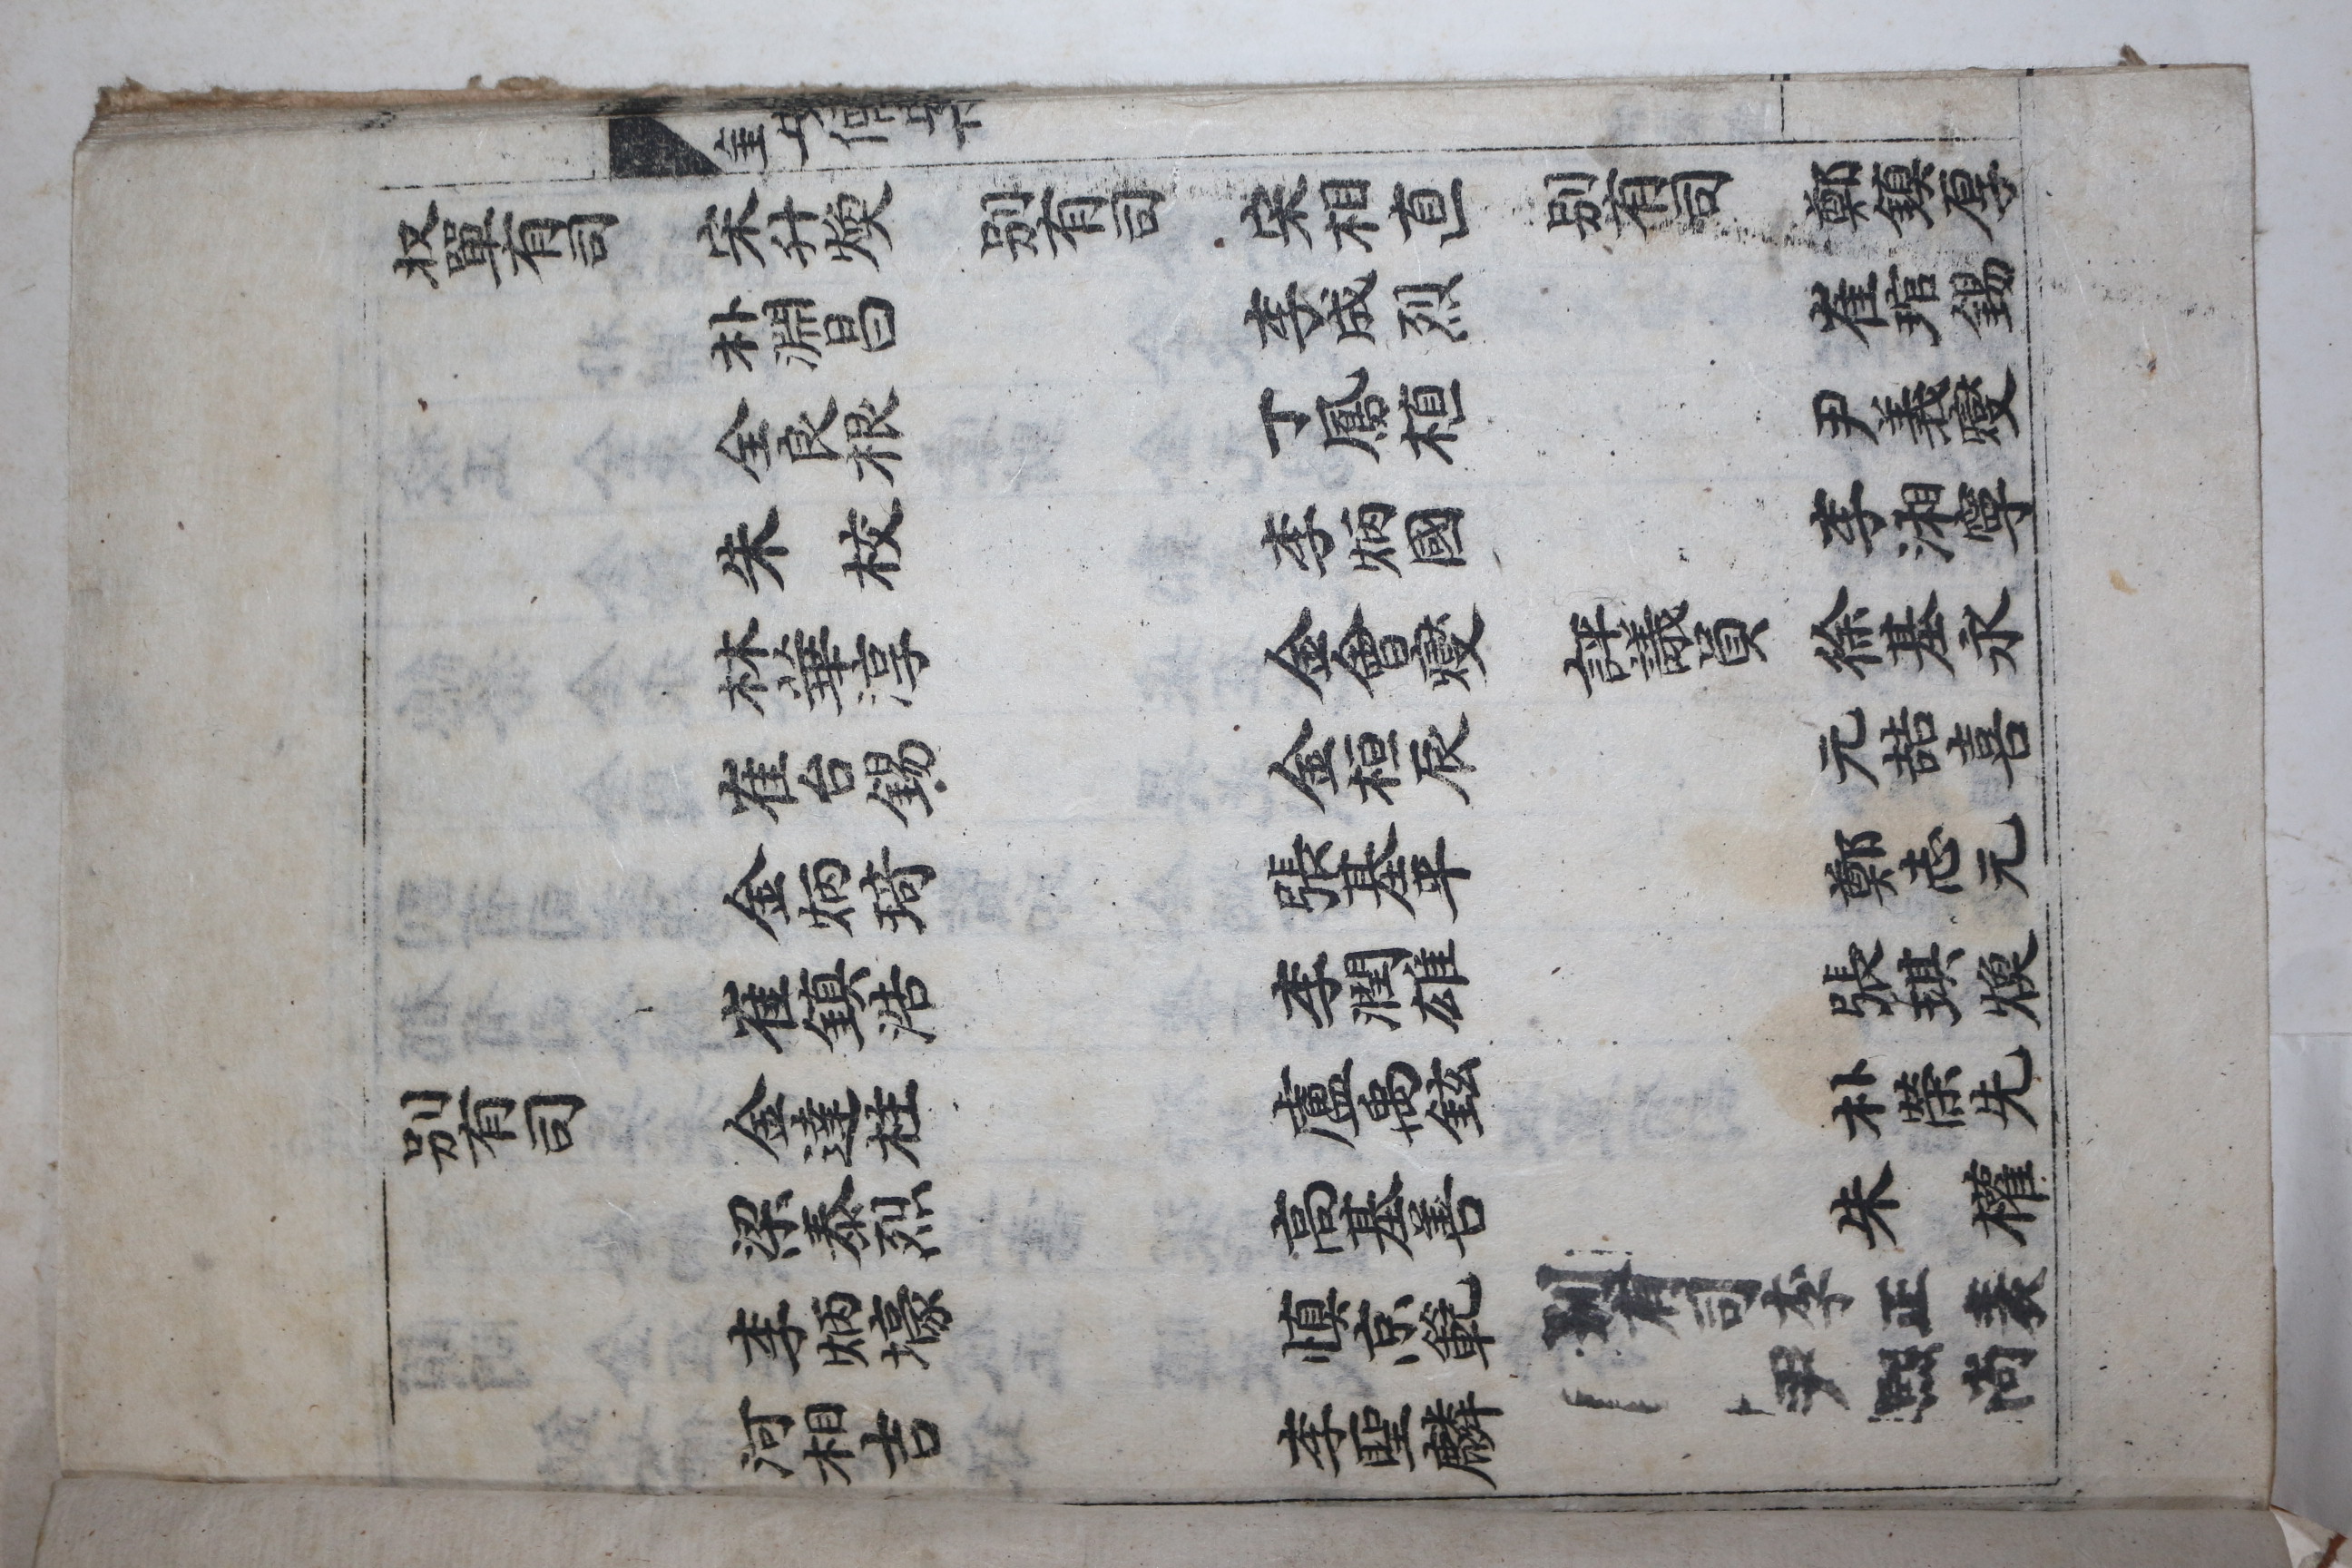 収單有司 宋升煥 別有司 宋相直 別有司 鄭鎮厚
朴淵昌 李成烈 崔琯錫
全良根 丁鳳植 尹義燮
朱校 李炳國 李湘寧
林華淳 金會燮 評議員 徐基永
崔台錫 金桓辰 元喆喜
金炳琦 張基平 鄭志元
崔鎮浩 李潤雄 張琪煥
別有司 金達柱 盧禹鉉 朴榮先
梁泰烈 高基善 朱權
李炳壕 愼京範 別有司 李正
河相吉 李聖麟 尹熙尚